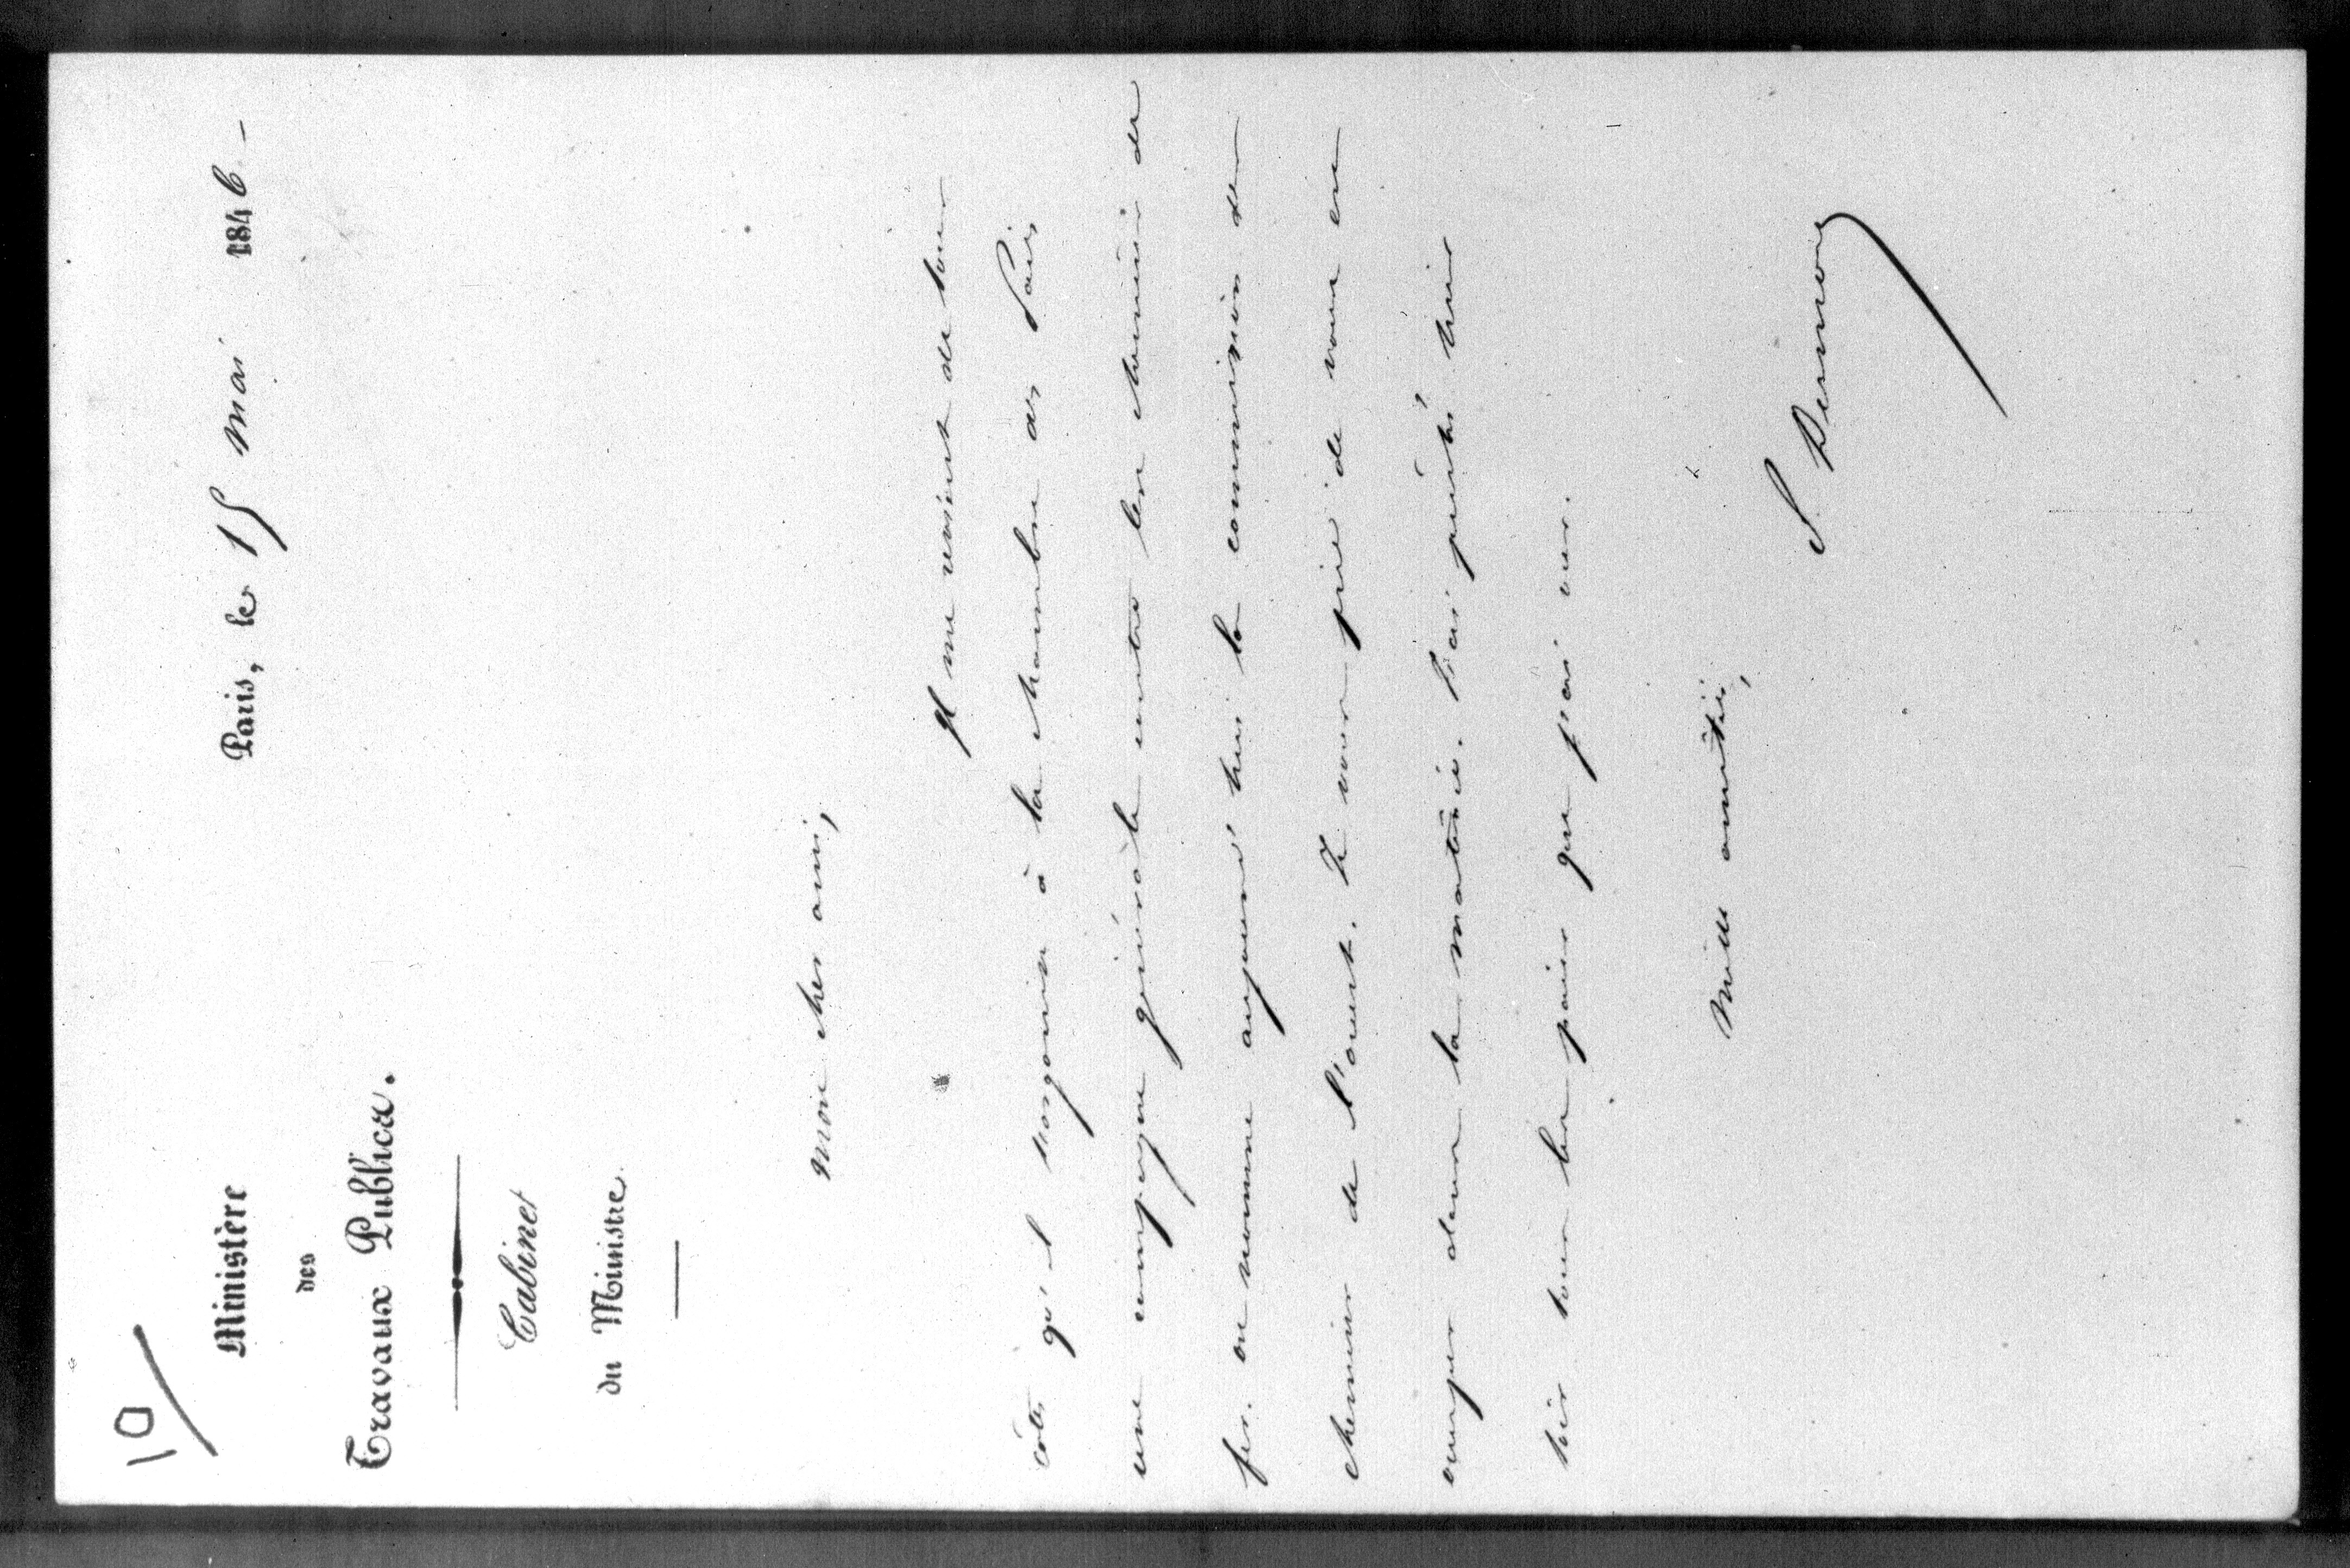 10/
Ministère
des
Travaux Publics.
Cabinet
du Ministre
Paris, le 15 mai 1846 -
mon cher ami,
Il me revient de tous
côtés qu'il s'organise à la chambre des Pairs
une campagne générale contre les chemins de
fer. on nomme aujourd'hui la commission des
chemins de l'ouest. Je vous prie de vous en
occuper dans la matinée. J'ai prêché hier
soir tous les pairs que j'ai vus.
mille amitiés,
S. Dumon